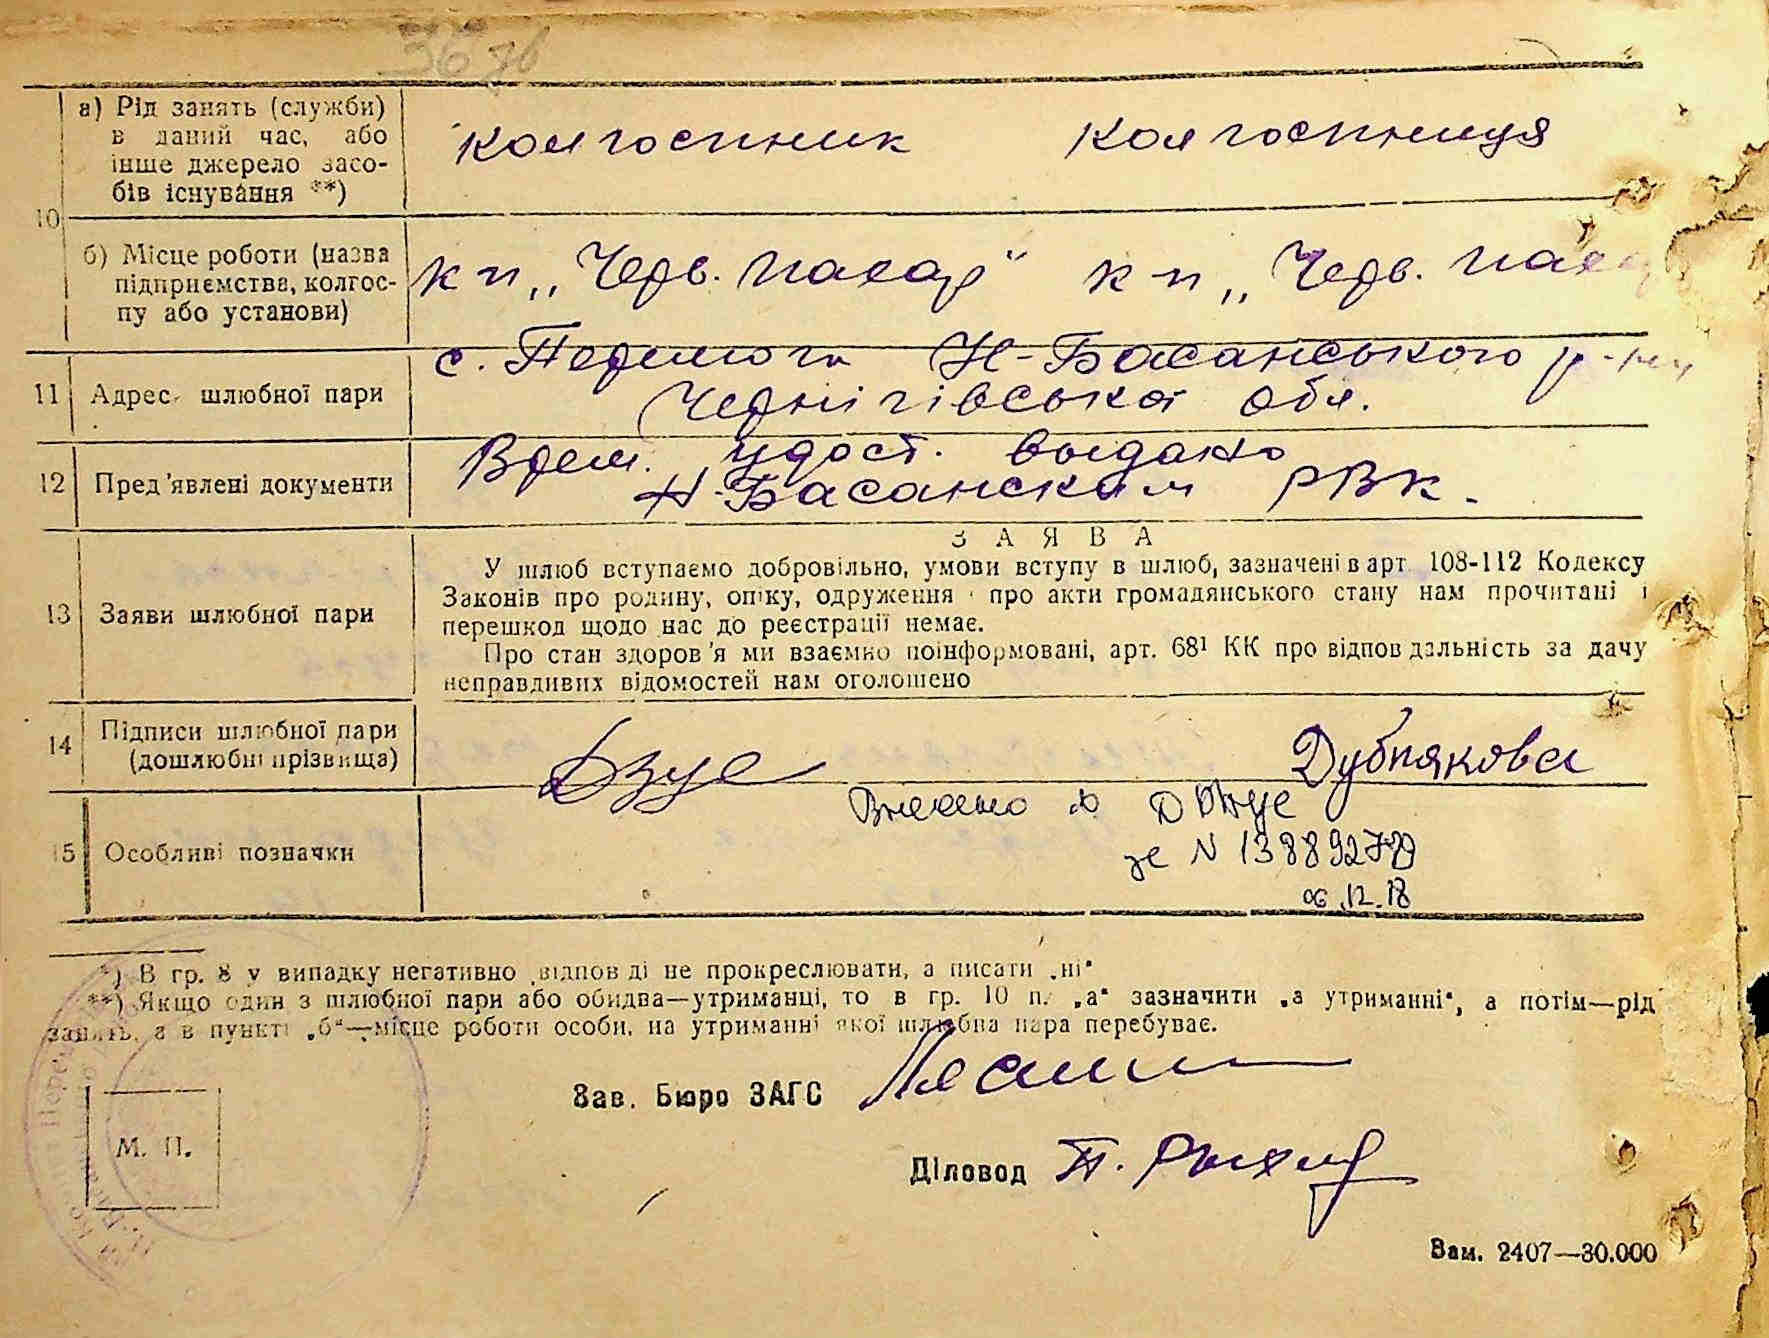 36 зв
а) Рід занять (служби)
в даний час, або
інше джерело засо-
бів існування **)
колгоспник колгоспниця
10
б) Місце роботи (назва
підприємства, колгос-
пу або установи)
кп „Черв. Пахар" кп „Черв. Паха
11 Адрес шлюбної пари
с. Перемога Н-Басанського р-ну
Чернігівської обл.
12 Пред'явлені документи
Врем. удост. выдано
Н-Басанским РВК.
13 Заяви шлюбної пари
ЗАЯВА
У шлюб вступаємо добровільно, умови вступу в шлюб, зазначені в арт 108-112 Кодексу
Законів про родину, опіку, одруження і про акти громадянського стану нам прочитані і
перешкод щодо нас до реєстрації немає.
Про стан здоров'я ми взаємно поінформовані, арт. 68¹ КК про відповідальність за дачу
неправдивих відомостей нам оголошено
14 Підписи шлюбної пари
(дошлюбні прізвища)
Дубнякова
15 Особливі позначки
Внесено до
за N 13889270
06.12.18
*) В гр. 8 у випадку негативної відповіді не прокреслювати, а писати „ні"
**) Якщо один з шлюбної пари або обидва—утриманці, то в гр. 10 п. „а" зазначити „а утриманні", а потім—рід
занять, а в пункті „б"—місце роботи особи, на утриманні якої шлюбна пара перебуває.
Зав. Бюро ЗАГС
М. П.
Діловод П.
Зам. 2407—30.000